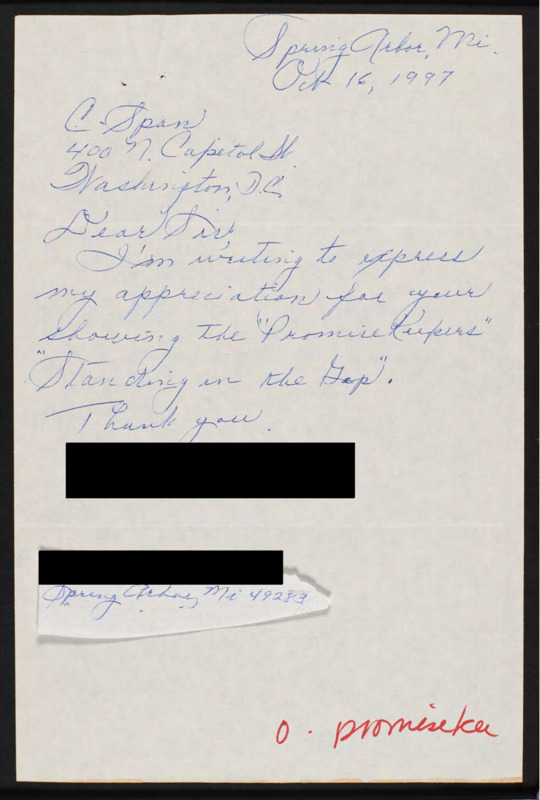 Spring Arbor, Mi.
Oct 16, 1997
C-Span
400 N. Capitol St.
Washington, D.C.
Dear Sir,
I'm writing to express
my appreciation for your
showing the "Promise Keepers"
"Standing in the Gap".
Thank you.
Spring Arbor, Mi 49283
O - promisekee